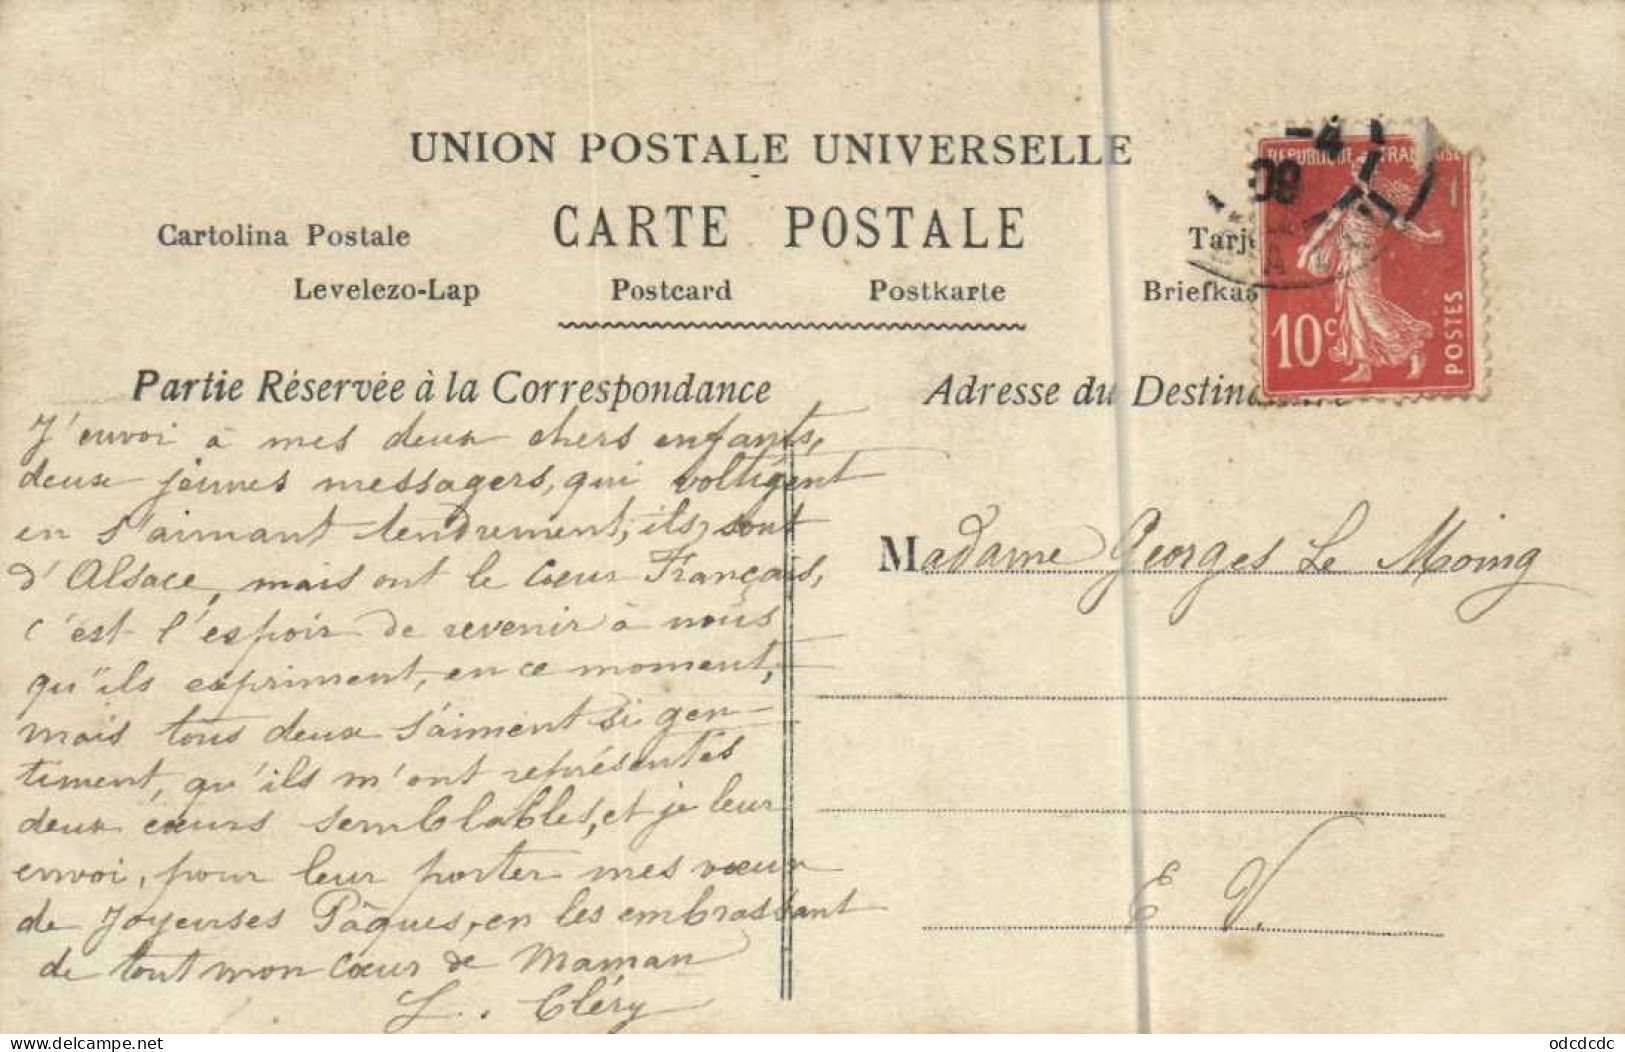 UNION POSTALE UNIVERSELLE
CARTE POSTALE
Cartolina Postale
Tarj
Levelezo-Lap Postcard Postkarte Briefkas
Partie Réservée à la Correspondance
Adresse du Destina
REPUBLIQUE FRANÇAISE
10c
POSTES
-4
09
J'envoi à mes deux chers enfants,
deux jeunes messagers, qui voltigent
en s'aimant tendrement, ils sont
d'Alsace, mais ont le Cœur Français,
c'est l'espoir de revenir à nous
qu'ils expriment, en ce moment,
mais tous deux s'aiment si gen-
timent, qu'ils m'ont représentés
deux cœurs semblables, et je leur
envoi, pour leur porter mes vœux
de Joyeuses Pâques, en les embrassant
de tout mon Cœur de Maman
L. Cléry
Madame Georges Le Moing
E V.
delcampe.net
odcdcdc